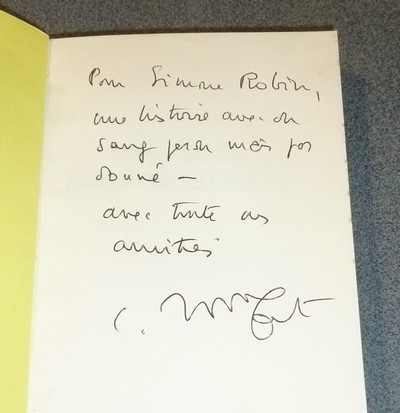 Pour Simone Robin,
une histoire avec du
sang perdu mais pas
donné —
avec toute
amitiés
C.